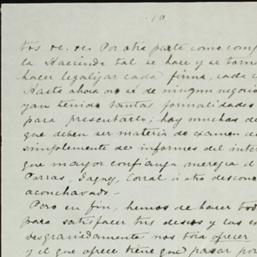 10
tos etc. etc. Por otra parte como comp
la Hacienda tal se hace y se torna
hacer legalizar cada firma, cada c
Hasta ahora no sé de ningun negocio
yan tenido tantas formalidades
para presentarlo; hay muchas de
que deben ser materia de examen de
simplemente de informes del inte
que mayor confianza merezca d
Parras, Saguy, Corral ú otro descon
aconchavado.—
Pero en fin, hemos de hacer tod
para satisfacer tus deseos y las e
desgraciadamente nos toca ofrecer
y el que ofrece tiene que pasar por